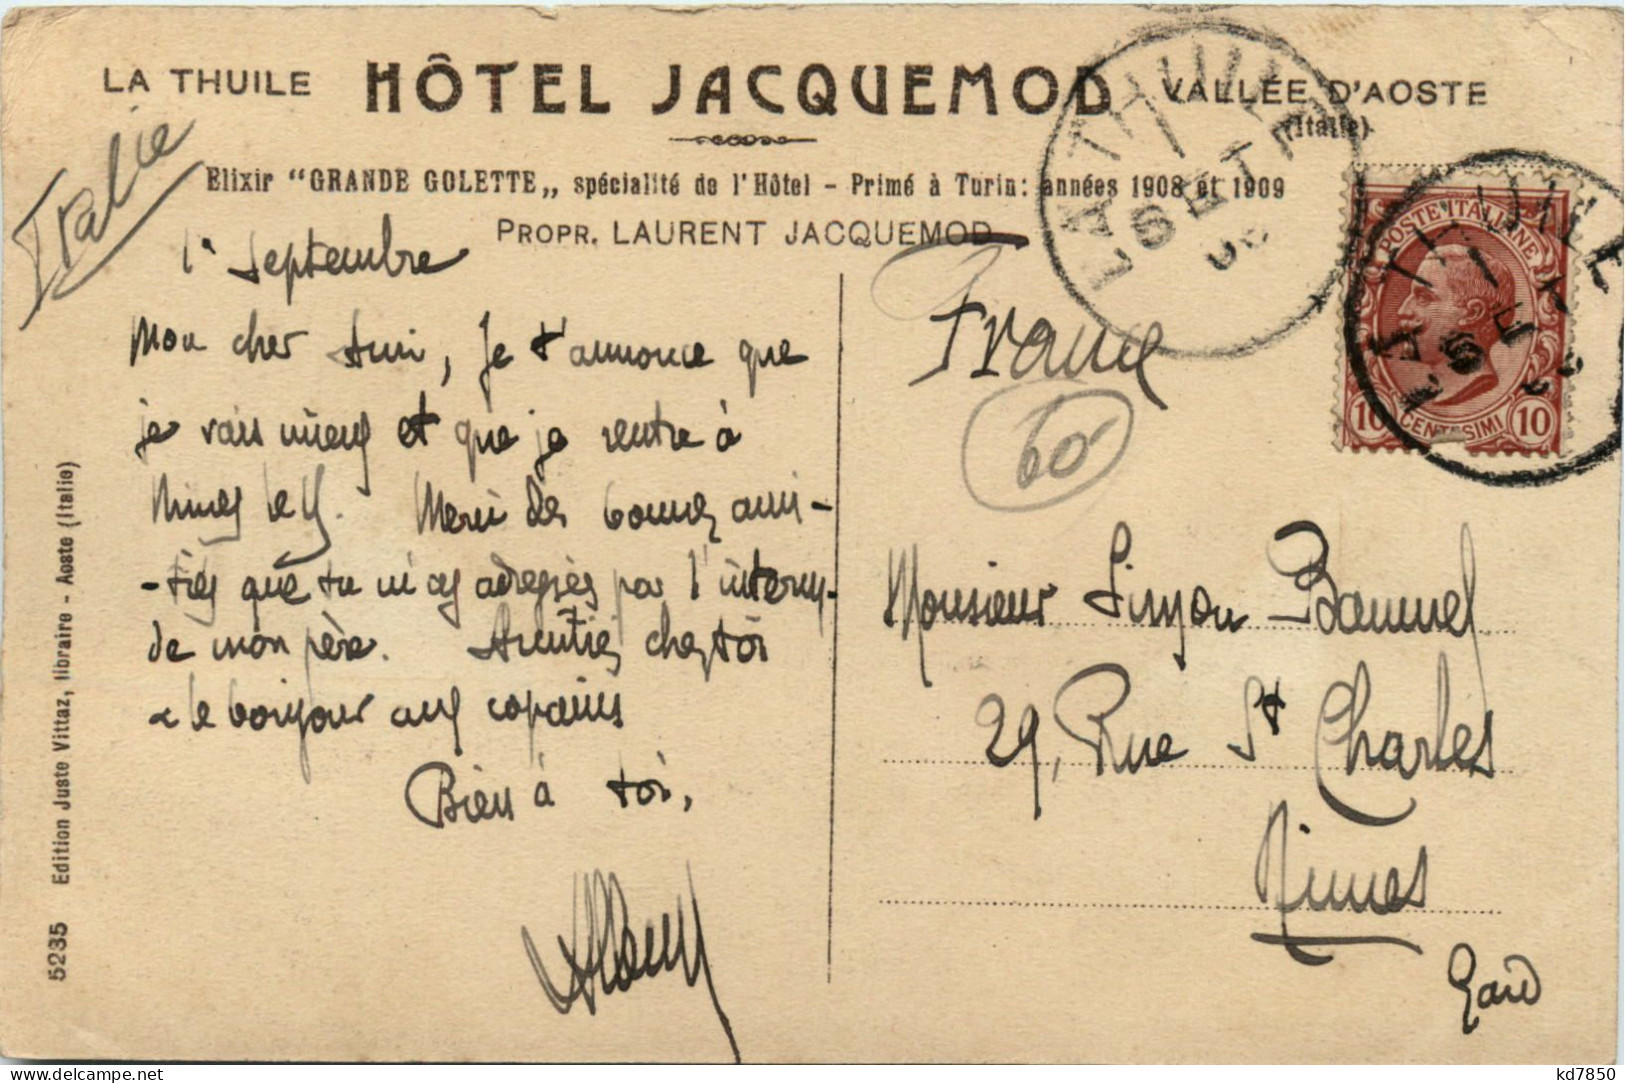 LA THUILE HÔTEL JACQUEMOD VALLÉE D'AOSTE
(Italie)
Italie
Elixir "GRANDE GOLETTE„ spécialité de l'Hôtel - Primé à Turin: années 1908 et 1909
PROPR. LAURENT JACQUEMOD
1er Septembre
Mon cher Ami, Je t'annonce que
je vais mieux et que je rentre à
Nimes le 4. Merci des bonnes ami-
-tiés que tu m'as adressées par l'interm-
de mon père. Amitiés chez toi
& le bonjour aux copains
Bien à toi,
France
60
Monsieur Simyon
29, Rue St Charles
Nimes
Gard
LA THUILE
1 SET
POSTE ITALIANE
10 CENTESIMI 10
LA THUILE
1 SET
5235 Edition Juste Vittaz, libraire - Aoste (Italie)
kd7850